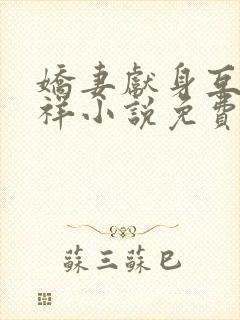 嬌妻獻身互
祥小說免費
蘇三蘇巳